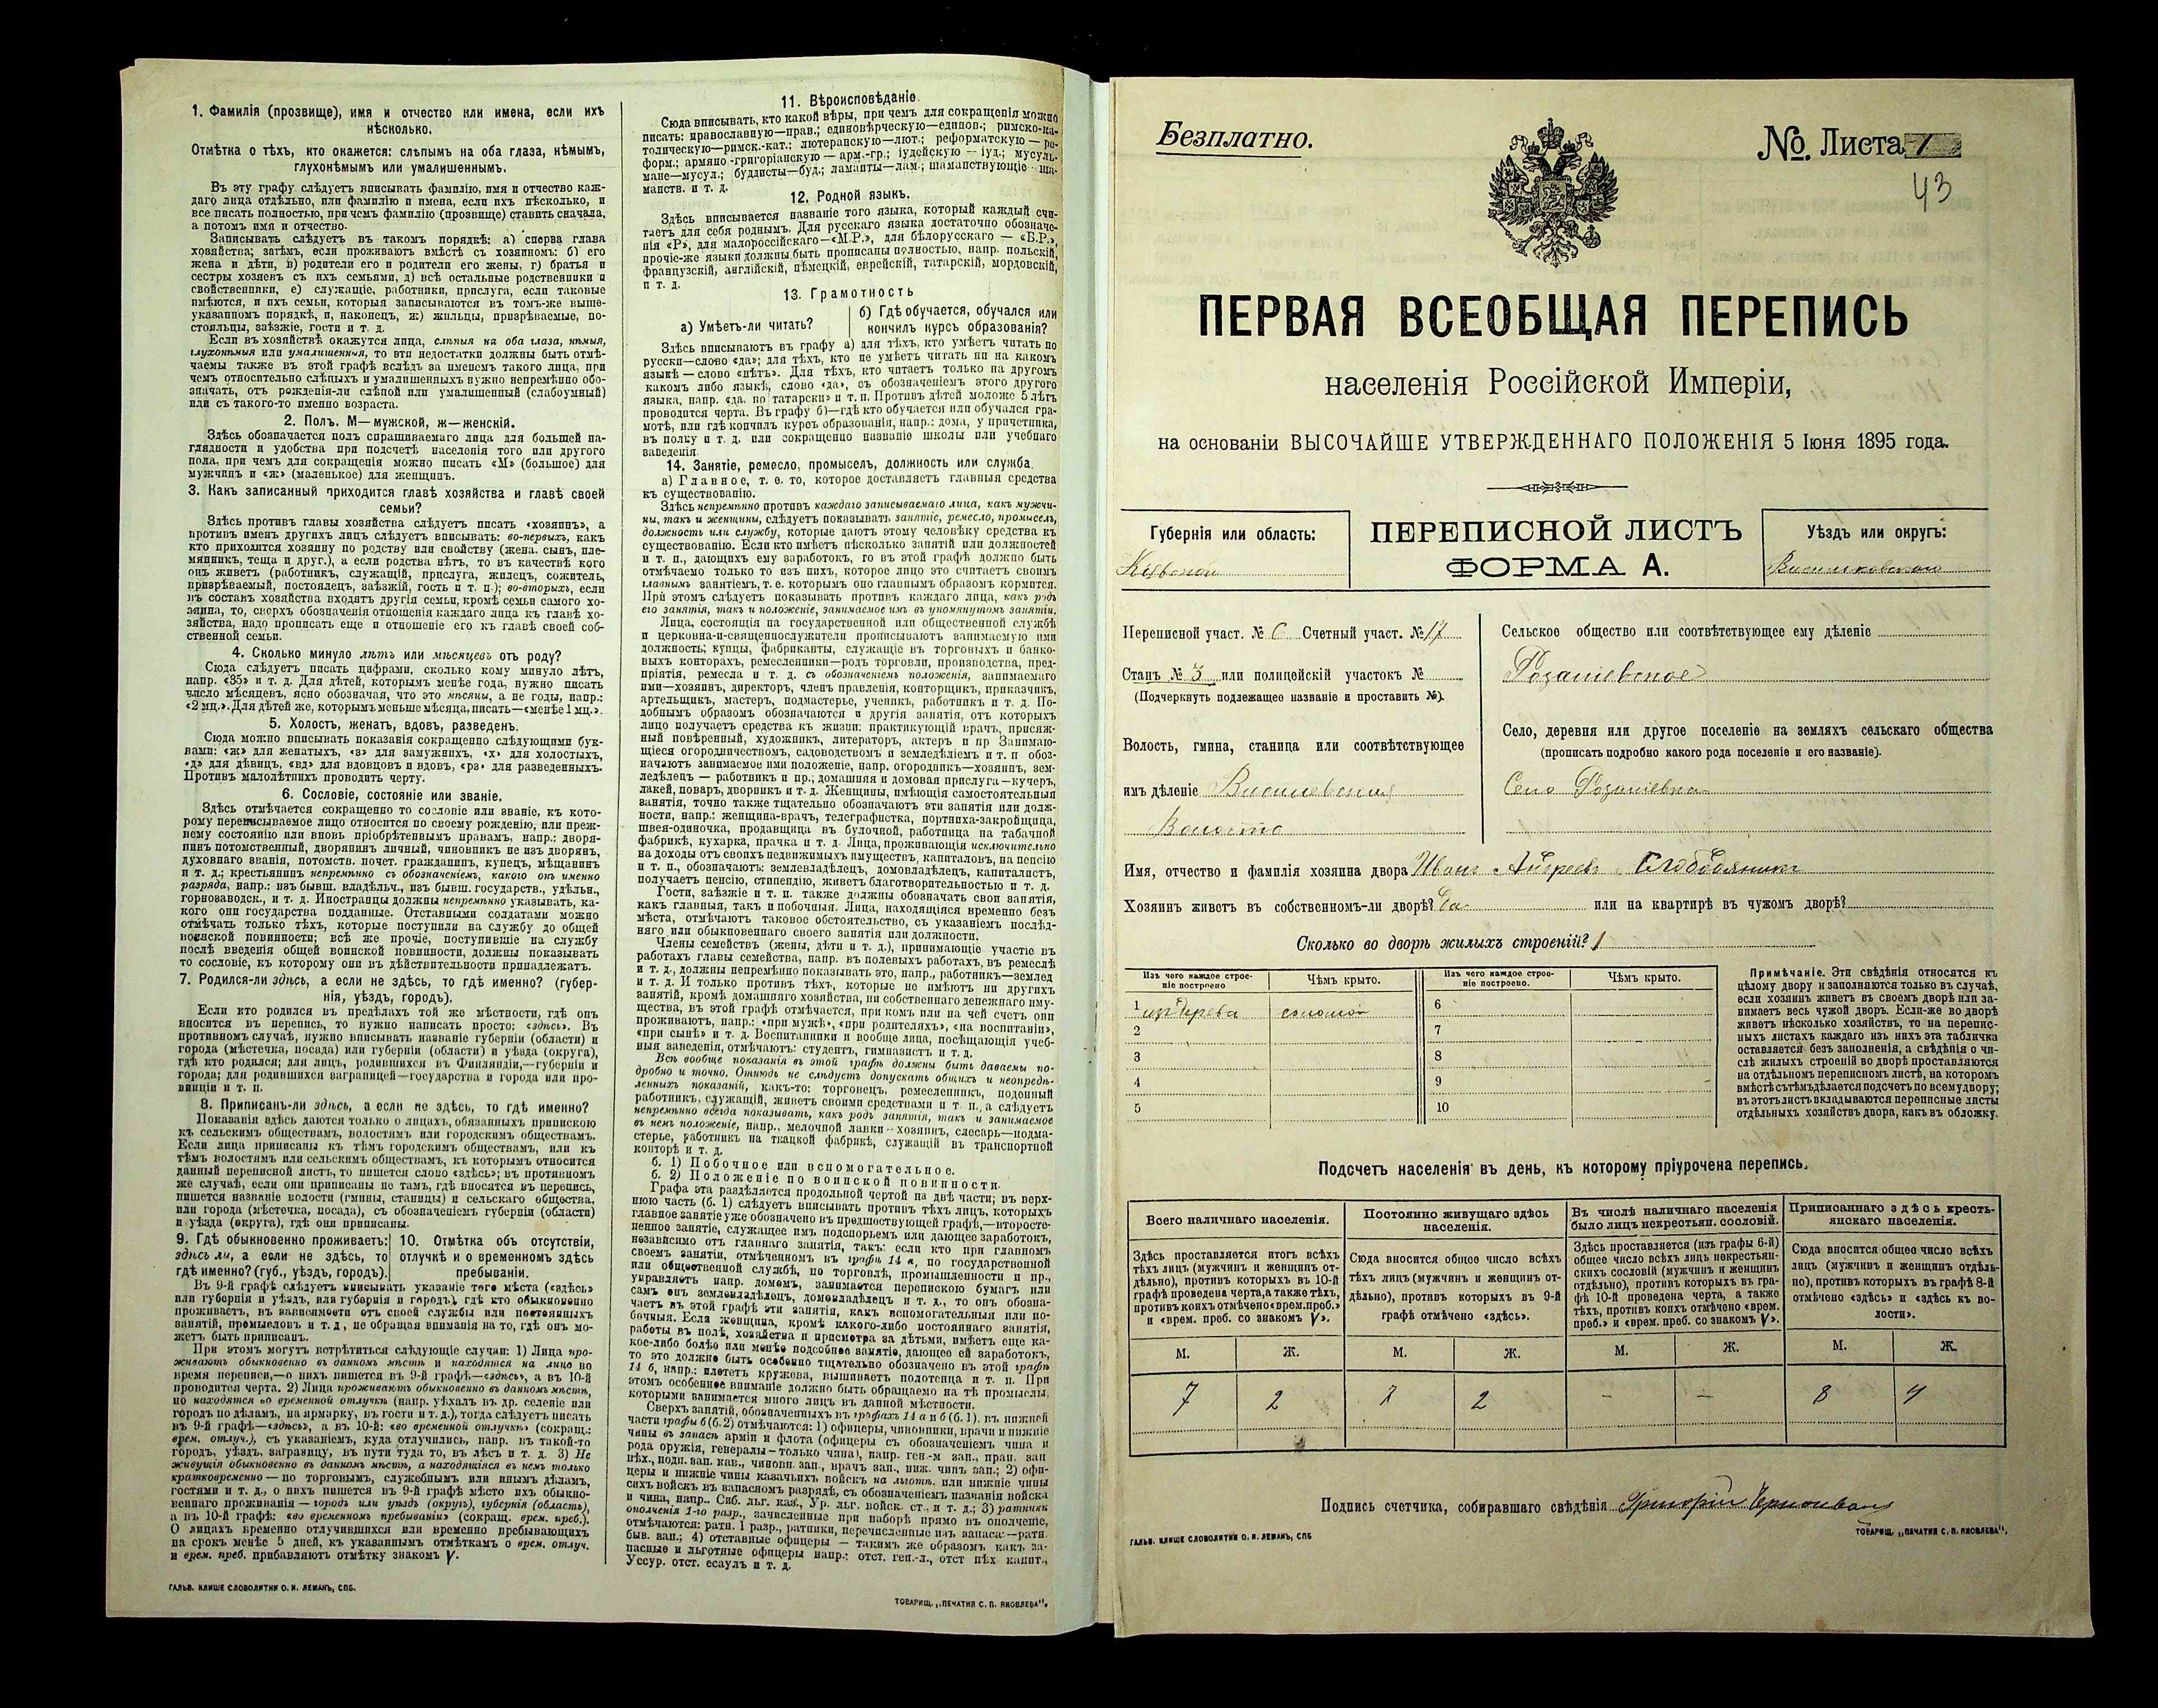 1. Фамилія (прозвище), имя и отчество или имена, если ихъ
нѣсколько.
Отмѣтка о тѣхъ, кто окажется: слѣпымъ на оба глаза, нѣмымъ,
глухонѣмымъ или умалишеннымъ.
Въ эту графу слѣдуетъ вписывать фамилію, имя и отчество каж-
даго лица отдѣльно, или фамилію и имена, если ихъ нѣсколько, и
все писать полностью, при чемъ фамилію (прозвище) ставить сначала,
а потомъ имя и отчество.
Записывать слѣдуетъ въ такомъ порядкѣ: а) сперва глава
хозяйства; затѣмъ, если проживаютъ вмѣстѣ съ хозяиномъ: б) его
жена и дѣти, в) родители его и родители его жены, г) братья и
сестры хозяевъ съ ихъ семьями, д) всѣ остальные родственники и
свойственники, е) служащіе, работники, прислуга, если таковые
имѣются, и ихъ семьи, которыя записываются въ томъ-же выше-
указанномъ порядкѣ, и, наконецъ, ж) жильцы, призрѣваемые, по-
стояльцы, заѣзжіе, гости и т. д.
Если въ хозяйствѣ окажутся лица, слѣпыя на оба глаза, нѣмыя,
глухонѣмыя или умалишенныя, то эти недостатки должны быть отмѣ-
чаемы также въ этой графѣ вслѣдъ за именемъ такого лица, при
чемъ относительно слѣпыхъ и умалишенныхъ нужно непремѣнно обо-
значать, отъ рожденія-ли слѣпой или умалишенный (слабоумный)
или съ такого-то именно возраста.
2. Полъ. М—мужской, ж—женскій.
Здѣсь обозначается полъ спрашиваемаго лица для большей на-
глядности и удобства при подсчетѣ населенія того или другого
пола, при чемъ для сокращенія можно писать «М» (большое) для
мужчинъ и «ж» (маленькое) для женщинъ.
3. Какъ записанный приходится главѣ хозяйства и главѣ своей
семьи?
Здѣсь противъ главы хозяйства слѣдуетъ писать «хозяинъ», а
противъ именъ другихъ лицъ слѣдуетъ вписывать: во-первыхъ, какъ
кто приходится хозяину по родству или свойству (жена, сынъ, пле-
мянникъ, теща и друг.), а если родства нѣтъ, то въ качествѣ кого
онъ живетъ (работникъ, служащій, прислуга, жилецъ, сожитель,
призрѣваемый, постоялецъ, заѣзжій, гость и т. п.); во-вторыхъ, если
въ составъ хозяйства входятъ другія семьи, кромѣ семьи самого хо-
зяина, то, сверхъ обозначенія отношенія каждаго лица къ главѣ хо-
зяйства, надо прописать еще и отношеніе его къ главѣ своей соб-
ственной семьи.
4. Сколько минуло лѣтъ или мѣсяцевъ отъ роду?
Сюда слѣдуетъ писать цифрами, сколько кому минуло лѣтъ,
напр. «35» и т. д. Для дѣтей, которымъ менѣе года, нужно писать
число мѣсяцевъ, ясно обозначая, что это мѣсяцы, а не годы, напр.:
«2 мц.». Для дѣтей же, которымъ меньше мѣсяца, писать—«менѣе 1 мц.».
5. Холостъ, женатъ, вдовъ, разведенъ.
Сюда можно вписывать показанія сокращенно слѣдующими бук-
вами: «ж» для женатыхъ, «з» для замужнихъ, «х» для холостыхъ,
«д» для дѣвицъ, «вд» для вдовцовъ и вдовъ, «рз» для разведенныхъ.
Противъ малолѣтнихъ проводить черту.
6. Сословіе, состояніе или званіе.
Здѣсь отмѣчается сокращенно то сословіе или званіе, къ кото-
рому переписываемое лицо относится по своему рожденію, или преж-
нему состоянію или вновь пріобрѣтеннымъ правамъ, напр.: дворя-
нинъ потомственный, дворянинъ личный, чиновникъ не изъ дворянъ,
духовнаго званія, потомств. почет. гражданинъ, купецъ, мѣщанинъ
и т. д.; крестьянинъ непремѣнно съ обозначеніемъ, какого онъ именно
разряда, напр.: изъ бывш. владѣльч., изъ бывш. государств., удѣльн.,
горнозаводск., и т. д. Иностранцы должны непремѣнно указывать, ка-
кого они государства подданные. Отставными солдатами можно
отмѣчать только тѣхъ, которые поступили на службу до общей
воинской повинности; всѣ же прочіе, поступившіе на службу
послѣ введенія общей воинской повинности, должны показывать
то сословіе, къ которому они въ дѣйствительности принадлежатъ.
7. Родился-ли здѣсь, а если не здѣсь, то гдѣ именно? (губер-
нія, уѣздъ, городъ).
Если кто родился въ предѣлахъ той же мѣстности, гдѣ онъ
вносится въ перепись, то нужно написать просто: «здѣсь». Въ
противномъ случаѣ, нужно вписывать названіе губерніи (области) и
города (мѣстечка, посада) или губерніи (области) и уѣзда (округа),
гдѣ кто родился; для лицъ, родившихся въ Финляндіи,—губерніи и
города; для родившихся заграницей—государства и города или про-
винціи и т. п.
8. Приписанъ-ли здѣсь, а если не здѣсь, то гдѣ именно?
Показанія здѣсь даются только о лицахъ, обязанныхъ припискою
къ сельскимъ обществамъ, волостямъ или городскимъ обществамъ.
Если лица приписаны къ тѣмъ городскимъ обществамъ, или къ
тѣмъ волостямъ или сельскимъ обществамъ, къ которымъ относится
данный переписной листъ, то пишется слово «здѣсь»; въ противномъ
же случаѣ, если они приписаны не тамъ, гдѣ вносятся въ перепись,
пишется названіе волости (гмины, станицы) и сельскаго общества,
или города (мѣстечка, посада), съ обозначеніемъ губерніи (области)
и уѣзда (округа), гдѣ они приписаны.
9. Гдѣ обыкновенно проживаетъ:
здѣсь ли, а если не здѣсь, то
гдѣ именно? (губ., уѣздъ, городъ).
10. Отмѣтка объ отсутствіи,
отлучкѣ и о временномъ здѣсь
пребываніи.
Въ 9-й графѣ слѣдуетъ вписывать указаніе того мѣста («здѣсь»
или губернія и уѣздъ, или губернія и городъ), гдѣ кто обыкновенно
проживаетъ, въ зависимости отъ своей службы или постоянныхъ
занятій, промысловъ и т. д, не обращая вниманія на то, гдѣ онъ мо-
жетъ быть приписанъ.
При этомъ могутъ встрѣтиться слѣдующіе случаи: 1) Лица про-
живаютъ обыкновенно въ данномъ мѣстѣ и находятся на лицо во
время переписи,—о нихъ пишется въ 9-й графѣ—«здѣсь», а въ 10-й
проводится черта. 2) Лица проживаютъ обыкновенно въ данномъ мѣстѣ,
но находятся во временной отлучкѣ (напр. уѣхалъ въ др. селеніе или
городъ по дѣламъ, на ярмарку, въ гости и т. д.), тогда слѣдуетъ писать
въ 9-й графѣ—«здѣсь», а въ 10-й: «во временной отлучкѣ» (сокращ.:
врем. отлуч.), съ указаніемъ, куда отлучились, напр. въ такой-то
городъ, уѣздъ, заграницу, въ пути туда то, въ лѣсъ и т. д. 3) Не
живущія обыкновенно въ данномъ мѣстѣ, а находящіяся въ немъ только
кратковременно — по торговымъ, служебнымъ или инымъ дѣламъ,
гостями и т. д., о нихъ пишется въ 9-й графѣ мѣсто ихъ обыкно-
веннаго проживанія — городъ или уѣздъ (округъ), губернія (область),
а въ 10-й графѣ: «во временномъ пребываніи» (сокращ. врем. преб.).
О лицахъ временно отлучившихся или временно пребывающихъ
на срокъ менѣе 5 дней, къ указаннымъ отмѣткамъ о врем. отлуч.
и врем. преб. прибавляютъ отмѣтку знакомъ V.
ГАЛЬВ. КЛИШЕ СЛОВОЛИТНИ О. И. ЛЕМАНЪ, СПБ.
11. Вѣроисповѣданіе.
Сюда вписывать, кто какой вѣры, при чемъ для сокращенія можно
писать: православную—прав.; единовѣрческую—единов.; римско-ка-
толическую—римск.-кат.; лютеранскую—лют.; реформатскую — ре-
форм.; армяно-григоріанскую — арм.-гр.; іудейскую — іуд.; мусуль-
мане—мусул.; буддисты—буд.; ламаиты—лам.; шаманствующіе—ша-
манств. и т. д.
12. Родной языкъ.
Здѣсь вписывается названіе того языка, который каждый счи-
таетъ для себя роднымъ. Для русскаго языка достаточно обозначе-
нія «Р», для малороссійскаго—«М.Р.», для бѣлорусскаго — «Б.Р.»,
прочіе-же языки должны быть прописаны полностью, напр. польскій,
французскій, англійскій, нѣмецкій, еврейскій, татарскій, мордовскій,
и т. д.
13. Грамотность
а) Умѣетъ-ли читать?
б) Гдѣ обучается, обучался или
кончилъ курсъ образованія?
Здѣсь вписываютъ въ графу а) для тѣхъ, кто умѣетъ читать по
русски—слово «да»; для тѣхъ, кто не умѣетъ читать ни на какомъ
языкѣ — слово «нѣтъ». Для тѣхъ, кто читаетъ только на другомъ
какомъ либо языкѣ, слово «да», съ обозначеніемъ этого другого
языка, напр. «да, по татарски» и т. п. Противъ дѣтей моложе 5 лѣтъ
проводится черта. Въ графу б)—гдѣ кто обучается или обучался гра-
мотѣ, или гдѣ кончилъ курсъ образованія, напр.: дома, у причетника,
въ полку и т. д. или сокращенно названіе школы или учебнаго
заведенія.
14. Занятіе, ремесло, промыселъ, должность или служба.
а) Главное, т. е. то, которое доставляетъ главныя средства
къ существованію.
Здѣсь непремѣнно противъ каждаго записываемаго лица, какъ мужчи-
ны, такъ и женщины, слѣдуетъ показывать занятіе, ремесло, промыселъ,
должность или службу, которые даютъ этому человѣку средства къ
существованію. Если кто имѣетъ нѣсколько занятій или должностей
и т. п., дающихъ ему заработокъ, то въ этой графѣ должно быть
отмѣчаемо только то изъ нихъ, которое лицо это считаетъ своимъ
главнымъ занятіемъ, т. е. которымъ оно главнымъ образомъ кормится.
При этомъ слѣдуетъ показывать противъ каждаго лица, какъ родъ
его занятія, такъ и положеніе, занимаемое имъ въ упомянутомъ занятіи.
Лица, состоящія на государственной или общественной службѣ
и церковно-и-священнослужители прописываютъ занимаемую ими
должность; купцы, фабриканты, служащіе въ торговыхъ и банко-
выхъ конторахъ, ремесленники—родъ торговли, производства, пред-
пріятія, ремесла и т. д. съ обозначеніемъ положенія, занимаемаго
ими—хозяинъ, директоръ, членъ правленія, конторщикъ, приказчикъ,
артельщикъ, мастеръ, подмастерье, ученикъ, работникъ и т. д. По-
добнымъ образомъ обозначаются и другія занятія, отъ которыхъ
лицо получаетъ средства къ жизни: практикующій врачъ, присяж-
ный повѣренный, художникъ, литераторъ, актеръ и пр Занимаю-
щіеся огородничествомъ, садоводствомъ и земледѣліемъ и т. п обоз-
начаютъ занимаемое ими положеніе, напр. огородникъ—хозяинъ, зем-
ледѣлецъ — работникъ и пр.; домашняя и домовая прислуга—кучеръ,
лакей, поваръ, дворникъ и т. д. Женщины, имѣющія самостоятельныя
занятія, точно также тщательно обозначаютъ эти занятія или долж-
ности, напр.: женщина-врачъ, телеграфистка, портниха-закройщица,
швея-одиночка, продавщица въ булочной, работница на табачной
фабрикѣ, кухарка, прачка и т. д. Лица, проживающія исключительно
на доходы отъ своихъ недвижимыхъ имуществъ, капиталовъ, на пенсію
и т. п., обозначаютъ: землевладѣлецъ, домовладѣлецъ, капиталистъ,
получаетъ пенсію, стипендію, живетъ благотворительностью и т. д.
Гости, заѣзжіе и т. п. также должны обозначать свои занятія,
какъ главныя, такъ и побочныя. Лица, находящіяся временно безъ
мѣста, отмѣчаютъ таковое обстоятельство, съ указаніемъ послѣд-
няго или обыкновеннаго своего занятія или должности.
Члены семействъ (жены, дѣти и т. д.), принимающіе участіе въ
работахъ главы семейства, напр. въ полевыхъ работахъ, въ ремеслѣ
и т. д., должны непремѣнно показывать это, напр., работникъ—землед
и т. д. И только противъ тѣхъ, которые не имѣютъ ни другихъ
занятій, кромѣ домашняго хозяйства, ни собственнаго денежнаго иму-
щества, въ этой графѣ отмѣчается, при комъ или на чей счетъ они
проживаютъ, напр.: «при мужѣ», «при родителяхъ», «на воспитаніи»,
«при сынѣ» и т. д. Воспитанники и вообще лица, посѣщающія учеб-
ныя заведенія, отмѣчаютъ: студентъ, гимназистъ и т. д.
Всѣ вообще показанія въ этой графѣ должны быть даваемы по-
дробно и точно. Отнюдь не слѣдуетъ допускать общихъ и неопредѣ-
ленныхъ показаній, какъ-то: торговецъ, ремесленникъ, поденный
работникъ, служащій, живетъ своими средствами и т. п., а слѣдуетъ
непремѣнно всегда показывать, какъ родъ занятія, такъ и занимаемое
въ немъ положеніе, напр., мелочной лавки - хозяинъ, слесарь—подма-
стерье, работникъ на ткацкой фабрикѣ, служащій въ транспортной
конторѣ и т. д.
б. 1) Побочное или вспомогательное.
б. 2) Положеніе по воинской повинности.
Графа эта раздѣляется продольной чертой на двѣ части; въ верх-
нюю часть (б. 1) слѣдуетъ вписывать противъ тѣхъ лицъ, которыхъ
главное занятіе уже обозначено въ предшествующей графѣ,—второсте-
пенное занятіе, служащее имъ подспорьемъ или дающее заработокъ,
независимо отъ главнаго занятія, такъ: если кто при главномъ
своемъ занятіи, отмѣченномъ въ графѣ 14 а, по государственной
или общественной службѣ, по торговлѣ, промышленности и пр.,
управляетъ напр. домомъ, занимается перепискою бумагъ или
самъ онъ землевладѣлецъ, домовладѣлецъ и т. д., то онъ обозна-
чаетъ въ этой графѣ эти занятія, какъ вспомогательныя или по-
бочныя. Если женщина, кромѣ какого-либо постояннаго занятія,
работы въ полѣ, хозяйства и присмотра за дѣтьми, имѣетъ еще ка-
кое-либо болѣе или менѣе подсобное занятіе, дающее ей заработокъ,
то это должно быть особенно тщательно обозначено въ этой графѣ
14 б, напр.: плететъ кружева, вышиваетъ полотенца и т. п. При
этомъ особенное вниманіе должно быть обращаемо на тѣ промыслы,
которыми занимается много лицъ въ данной мѣстности.
Сверхъ занятій, обозначенныхъ въ графахъ 14 а и б (б. 1). въ нижней
части графы б (б. 2) отмѣчаются: 1) офицеры, чиновники, врачи и нижніе
чины въ запасѣ арміи и флота (офицеры съ обозначеніемъ чина и
рода оружія, генералы—только чина), напр. ген-м зап., прап. зап
пѣх., подп. зап. кав., чиновн. зап., врачъ зап., ниж. чинъ зап.; 2) офи-
церы и нижніе чины казачьихъ войскъ на льготѣ. или нижніе чины
сихъ войскъ въ запасномъ разрядѣ, съ обозначеніемъ названія войска
и чина, напр.. Сиб. льг. каз., Ур. льг. войск. ст., и т. д.; 3) ратники
ополченія 1-го разр., зачисленные при наборѣ прямо въ ополченіе,
отмѣчаются: ратн. 1 разр., ратники, перечисленные изъ запаса:—ратн.
быв. зап.; 4) отставные офицеры — такимъ же образомъ какъ за-
пасные и льготные офицеры напр.: отст. ген.-л., отст пѣх капит.,
Уссур. отст. есаулъ и т. д.
ТОВАРИЩ. „ПЕЧАТНЯ С. П. ЯКОВЛЕВА“.
Безплатно.
№. Листа 1
43
ПЕРВАЯ ВСЕОБЩАЯ ПЕРЕПИСЬ
населенія Россійской Имперіи,
на основаніи ВЫСОЧАЙШЕ УТВЕРЖДЕННАГО ПОЛОЖЕНІЯ 5 Іюня 1895 года.
Губернія или область:
Кіевской
ПЕРЕПИСНОЙ ЛИСТЪ
ФОРМА А.
Уѣздъ или округъ:
Васильковскаго
Переписной участ. № 6 Счетный участ. № 17
Станъ № 3 или полицейскій участокъ №
(Подчеркнуть подлежащее названіе и проставить №).
Волость, гмина, станица или соотвѣтствующее
имъ дѣленіе
Волость
Сельское общество или соотвѣтствующее ему дѣленіе
Розаліевское
Село, деревня или другое поселеніе на земляхъ сельскаго общества
(прописать подробно какого рода поселеніе и его названіе).
Село Розаліевка
Имя, отчество и фамилія хозяина двора Иванъ Андреевъ Слободяникъ
Хозяинъ живетъ въ собственномъ-ли дворѣ? Да или на квартирѣ въ чужомъ дворѣ?
Сколько во дворѣ жилыхъ строеній? 1
Изъ чего каждое строе-
ніе построено
Чѣмъ крыто.
Изъ чего каждое строе-
ніе построено.
Чѣмъ крыто.
1 изъ древа соломой 6
2 7
3 8
4 9
5 10
Примѣчаніе. Эти свѣдѣнія относятся къ
цѣлому двору и заполняются только въ случаѣ,
если хозяинъ живетъ въ своемъ дворѣ или за-
нимаетъ весь чужой дворъ. Если-же во дворѣ
живетъ нѣсколько хозяйствъ, то на перепис-
ныхъ листахъ каждаго изъ нихъ эта табличка
оставляется безъ заполненія, а свѣдѣнія о чи-
слѣ жилыхъ строеній во дворѣ проставляются
на отдѣльномъ переписномъ листѣ, на которомъ
вмѣстѣ съ тѣмъ дѣлается подсчетъ по всему двору;
въ этотъ листъ вкладываются переписные листы
отдѣльныхъ хозяйствъ двора, какъ въ обложку.
Подсчетъ населенія въ день, къ которому пріурочена перепись.
Всего наличнаго населенія.
Здѣсь проставляется итогъ всѣхъ
тѣхъ лицъ (мужчинъ и женщинъ от-
дѣльно), противъ которыхъ въ 10-й
графѣ проведена черта, а также тѣхъ,
противъ коихъ отмѣчено «врем. проб.»
и «врем. преб. со знакомъ V».
Постоянно живущаго здѣсь
населенія.
Сюда вносится общее число всѣхъ
тѣхъ лицъ (мужчинъ и женщинъ от-
дѣльно), противъ которыхъ въ 9-й
графѣ отмѣчено «здѣсь».
Въ числѣ наличнаго населенія
было лицъ некрестьян. сословій.
Здѣсь проставляется (изъ графы 6-й)
общее число всѣхъ лицъ некрестьян-
скихъ сословій (мужчинъ и женщинъ
отдѣльно), противъ которыхъ въ гра-
фѣ 10-й проведена черта, а также
тѣхъ, противъ коихъ отмѣчено «врем.
преб.» и «врем. преб. со знакомъ V».
Приписаннаго здѣсь кресть-
янскаго населенія.
Сюда вносится общее число всѣхъ
лицъ (мужчинъ и женщинъ отдѣль-
но), противъ которыхъ въ графѣ 8-й
отмѣчено «здѣсь» и «здѣсь къ во-
лости».
М. Ж. М. Ж. М. Ж. М. Ж.
7 2 7 2 - - 8 4
Подпись счетчика, собиравшаго свѣдѣнія Григорій
ГАЛЬВ. КЛИШЕ СЛОВОЛИТНИ О. И. ЛЕМАНЪ, СПБ
ТОВАРИЩ. „ПЕЧАТНЯ С. П. ЯКОВЛЕВА“,